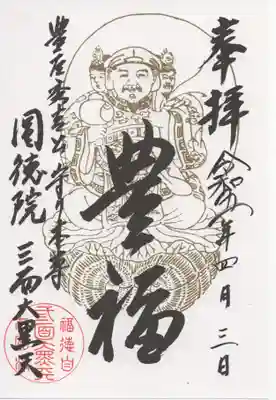 奉拝
令和八年四月三日
豊福
豊臣秀吉公守り本尊
圓徳院 三面大黒天
三面大黒天